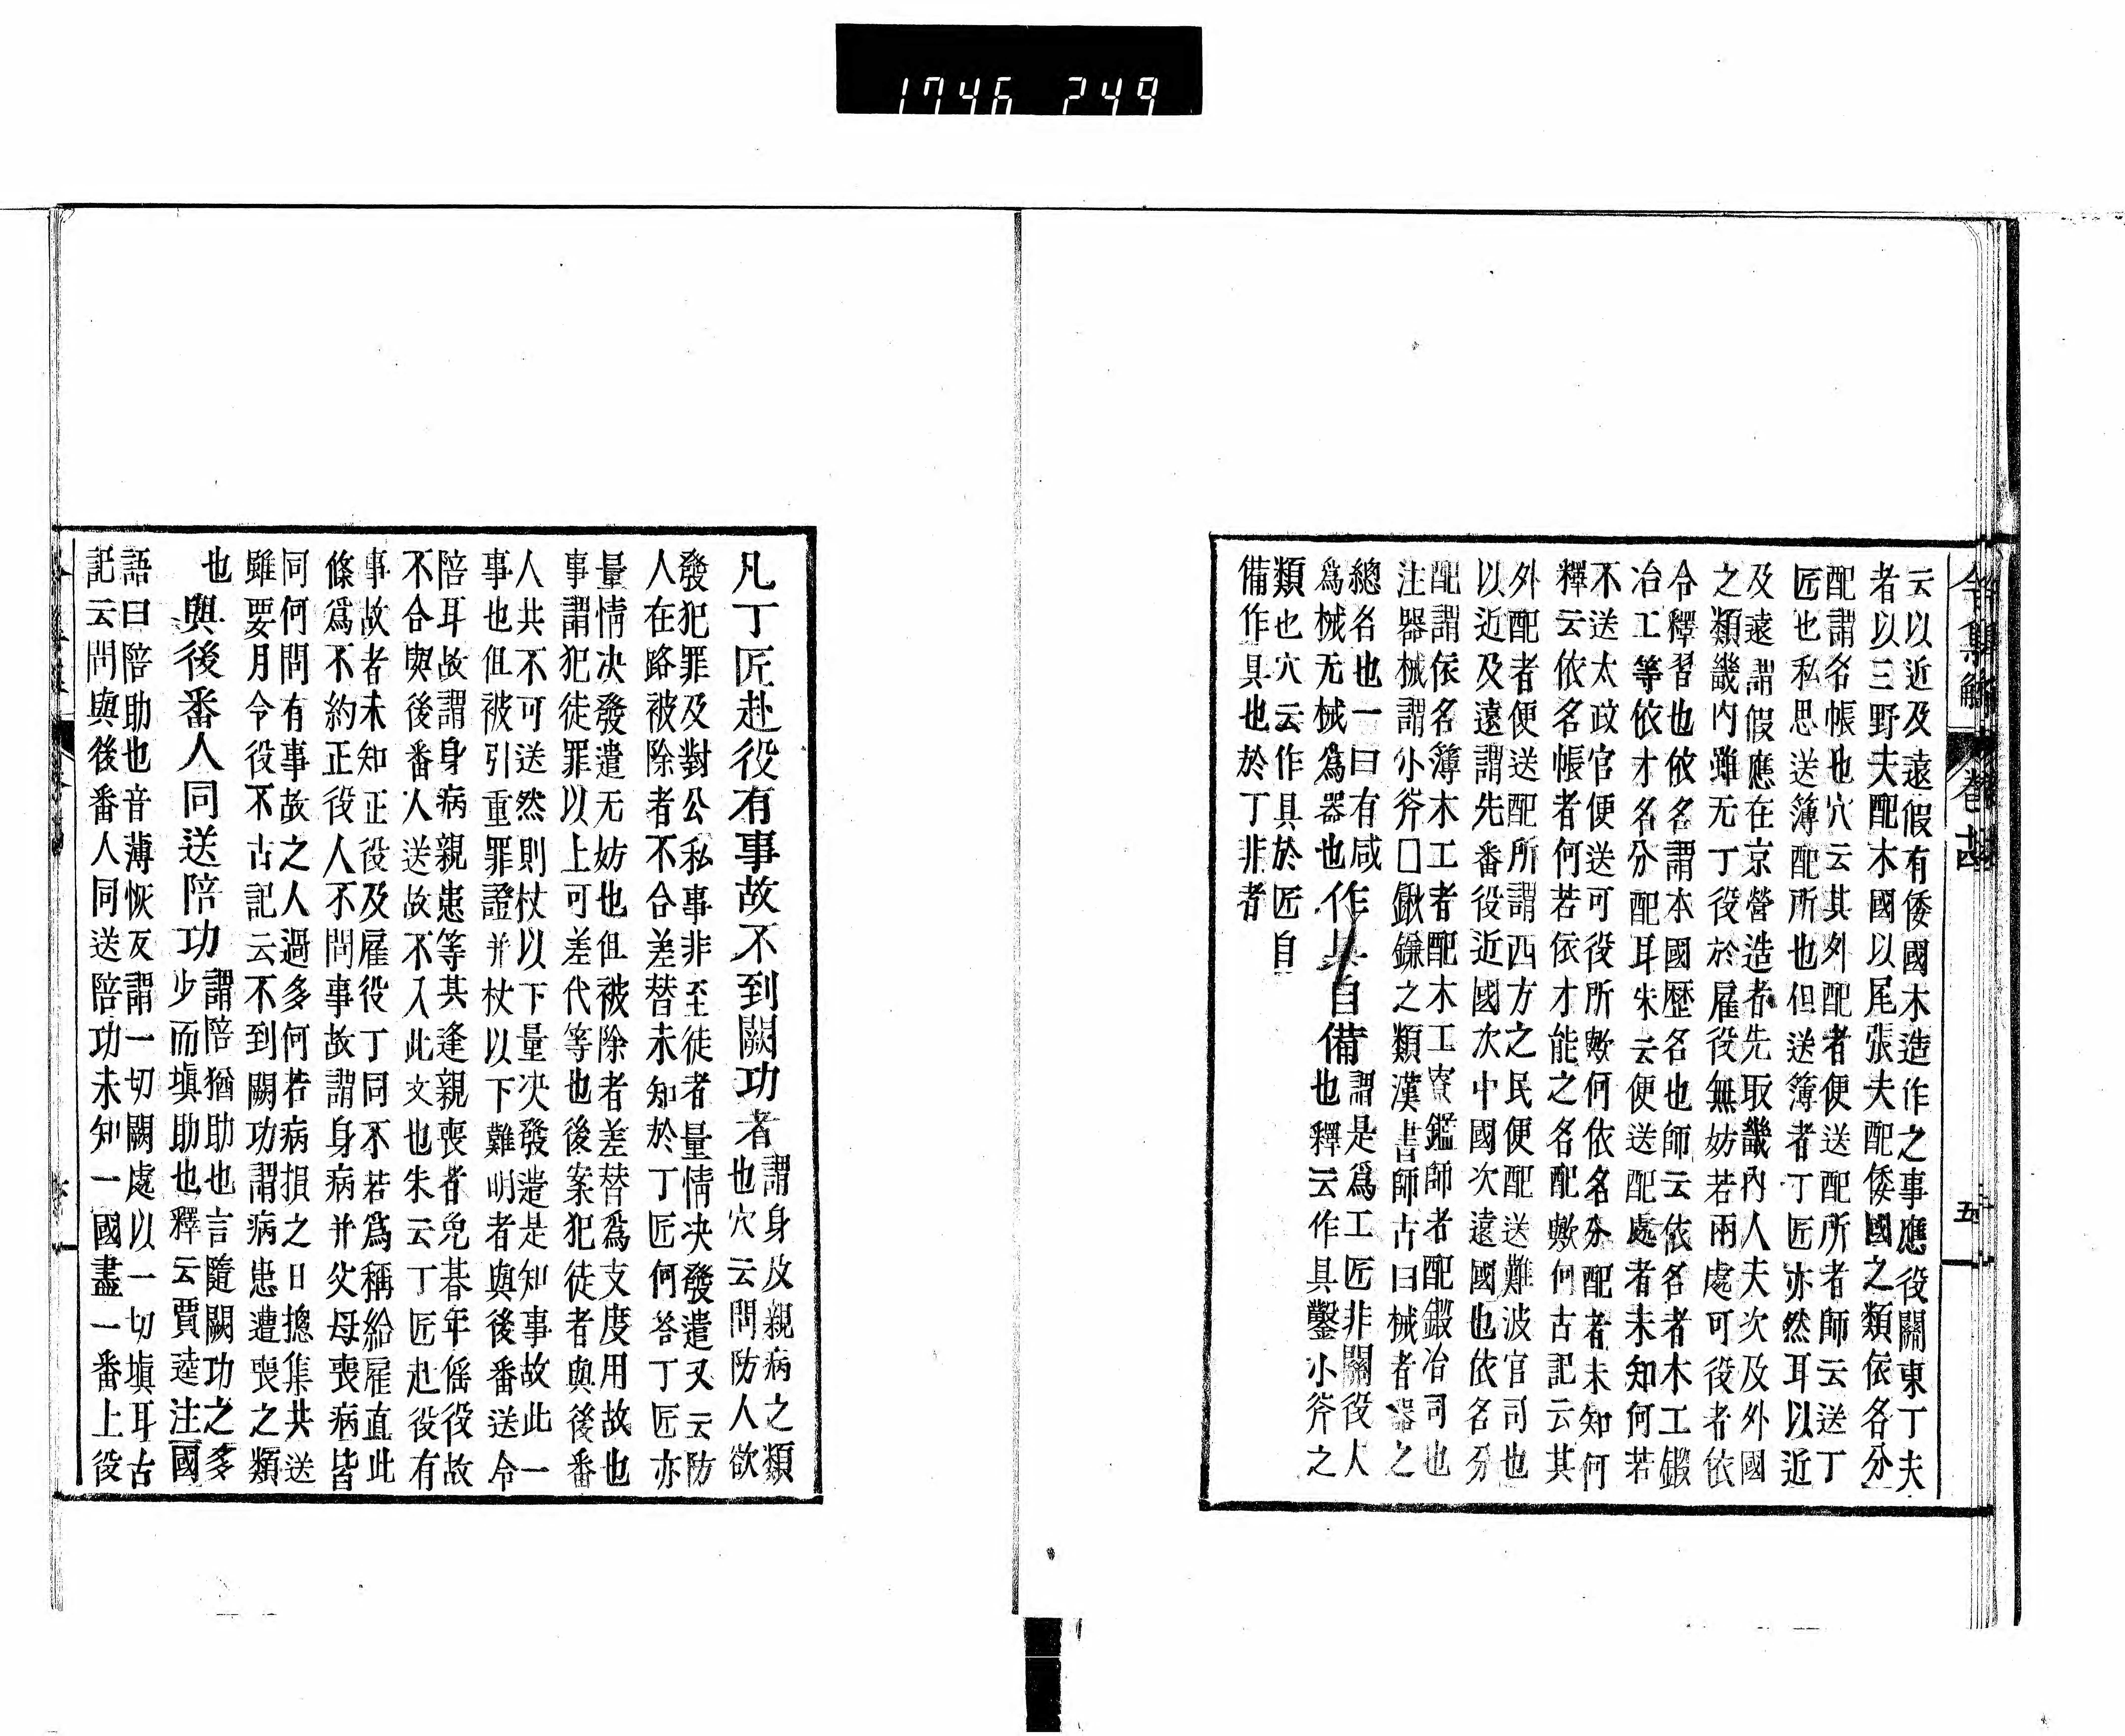 1746 249
令集解 卷 五
云以近及遠假有倭國木造作之事應役關東丁夫
者以三野夫配木國以尾張夫配倭國之類依名分
配謂名帳也穴云其外配者便送配所者師云送丁
匠也私思送簿配所也但送簿者丁匠亦然耳以近
及遠謂假應在京營造者先取畿内人夫次及外國
之類畿内雖无丁役於雇役無妨若兩處可役者依
令釋習也依名謂本國歷名也師云依名者木工鍛
冶工等依才名分配耳朱云便送配處者未知何若
不送太政官便送可役所歟何依名分配者未知何
釋云依名帳者何若依才能之名配歟何古記云其
外配者便送配所謂西方之民便配送難波官司也
以近及遠謂先番役近國次中國次遠國也依名分
配謂依名簿木工者配木工寮鑑師者配鍛冶司也
注器械謂小斧□鍬鎌之類漢書師古曰械者器之
總名也一曰有咸
爲械无械爲器也
作具自備
謂是爲工匠非關役人
也釋云作具鑿小斧之
類也穴云作具於匠自
備作具也於丁非者
凡丁匠赴役有事故不到闕功者
謂身及親病之類
也穴云問防人欲
發犯罪及對公私事非至徒者量情決發遣又云防
人在路被除者不合差替未知於丁匠何答丁匠亦
量情决發遣无妨也但被除者差替爲支度用故也
事謂犯徒罪以上可差代等也後案犯徒者與後番
人共不可送然則杖以下量决發遣是知事故此一
事也但被引重罪證并杖以下難明者與後番送令
陪耳故謂身病親患等其逢親喪者免朞年傜役故
不合與後番人送故不入此文也朱云丁匠赴役有
事故者未知正役及雇役丁同不若爲稱給雇直此
條爲不約正役人不問事故謂身病并父母喪病皆
同何問有事故之人過多何若病損之日摠集共送
雖要月令役不古記云不到闕功謂病患遭喪之類
也
與後番人同送陪功
謂陪猶助也言隨闕功之多
少而塡助也釋云賈逵注國
語曰陪助也音薄恢反謂一切闕處以一切塡耳古
記云問與後番人同送陪功未知一國盡一番上役